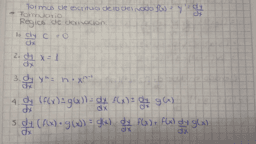 Formas de escritura de la derivada f(x) = y' = dy/dx
* Formulario
Reglas de derivación
1. dy/dx c = 0
2. dy/dx x = 1
3. dy/dx xⁿ = n · xⁿ⁻¹
4. dy/dx (f(x) ± g(x)) = dy/dx f(x) ± dy/dx g(x)
5. dy/dx (f(x) · g(x)) = g(x) dy/dx f(x) + f(x) dy/dx g(x)